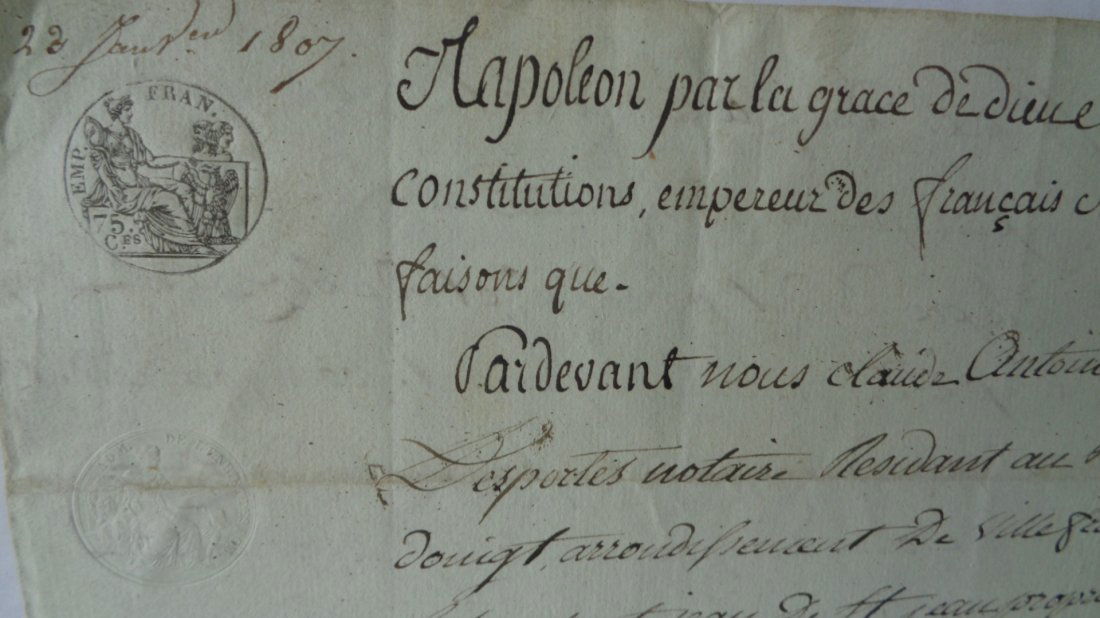 23 Janv.er 1807.
EMP. FRAN.
75. C.ES
Napoleon par la grace de dieu e
constitutions, empereur des français
faisons que.
Pardevant nous claude Antoin
Desportes notaire Residant au
doingt, arrondissement de Ville
de St jean